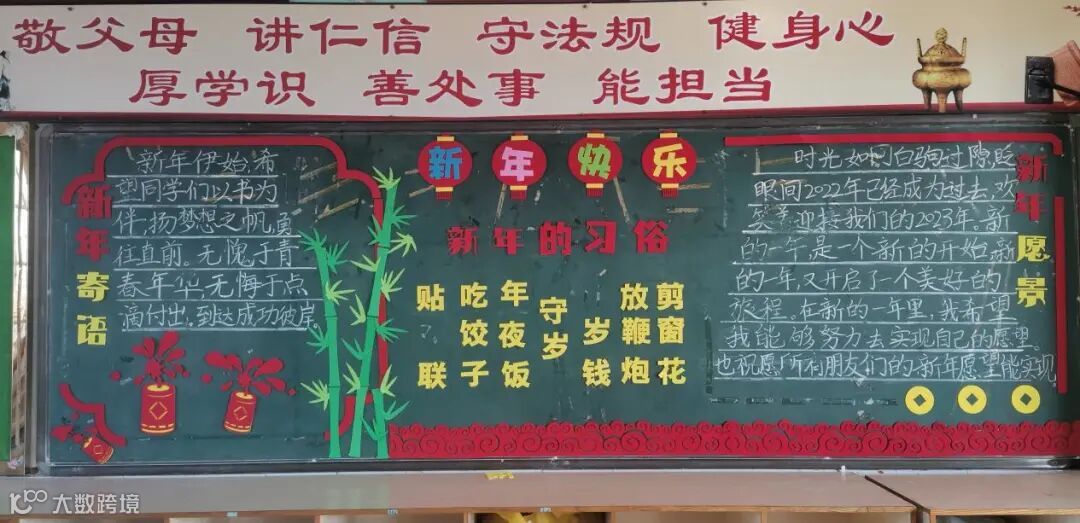 敬父母 讲仁信 守法规 健身心
厚学识 善处事 能担当
新年寄语
新年伊始,希
望同学们以书为
伴,扬梦想之帆,勇
往直前。无愧于青
春年华,无悔于点
滴付出,到达成功彼岸。
新年快乐
新年的习俗
贴联
吃饺子
年夜饭
守岁
岁钱
放鞭炮
剪窗花
新年愿景
时光如同白驹过隙,眨
眼间2022年已经成为过去,欢
笑迎接我们的2023年。新
的一年,是一个新的开始,新
的一年,又开启了一个美好的
旅程。在新的一年里,我希望
我能够努力去实现自己的愿望。
也祝愿所有朋友们的新年愿望能实现
大数跨境